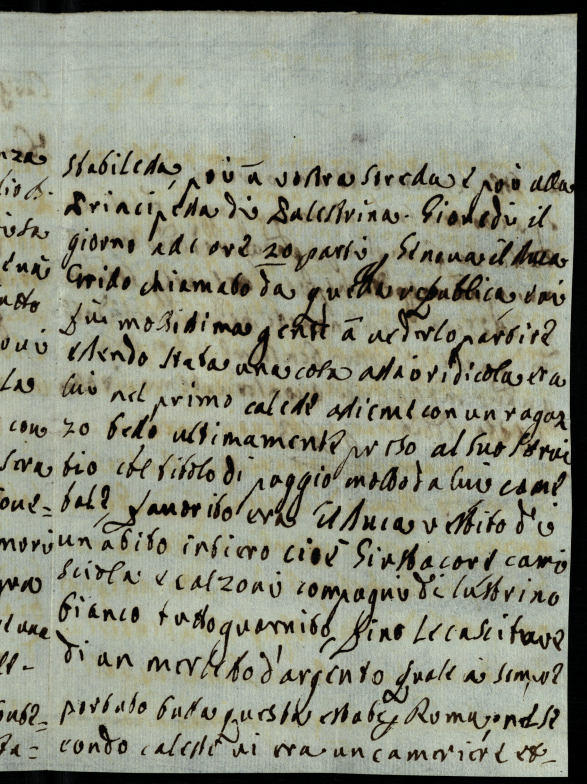 nza stabilella, poi à vostra sorella e poi alla
Principessa di Palestrina. Giovedi il
giorno ad ore 20 partì p Genova il Duca
Guido chiamato da quella republica, vi
fù moltissima gente à vederlo partire
essendo stata una cosa assai ridicola, era
La lui nel primo calesse assieme con un ragaz
con zo bello ultimamente preso al suo servi
sera tio col titolo di paggio molto da lui come
tale favorito era il Duca vestito di
un abito intiero cioè Giustacore cami
sciola e calzoni compagni di lustrino
bianco tutto guarnito, fino le
di un merletto d'argento quale à sempre
portato tutta questa estate p Roma, nel se
condo calesse vi era un cameriere et